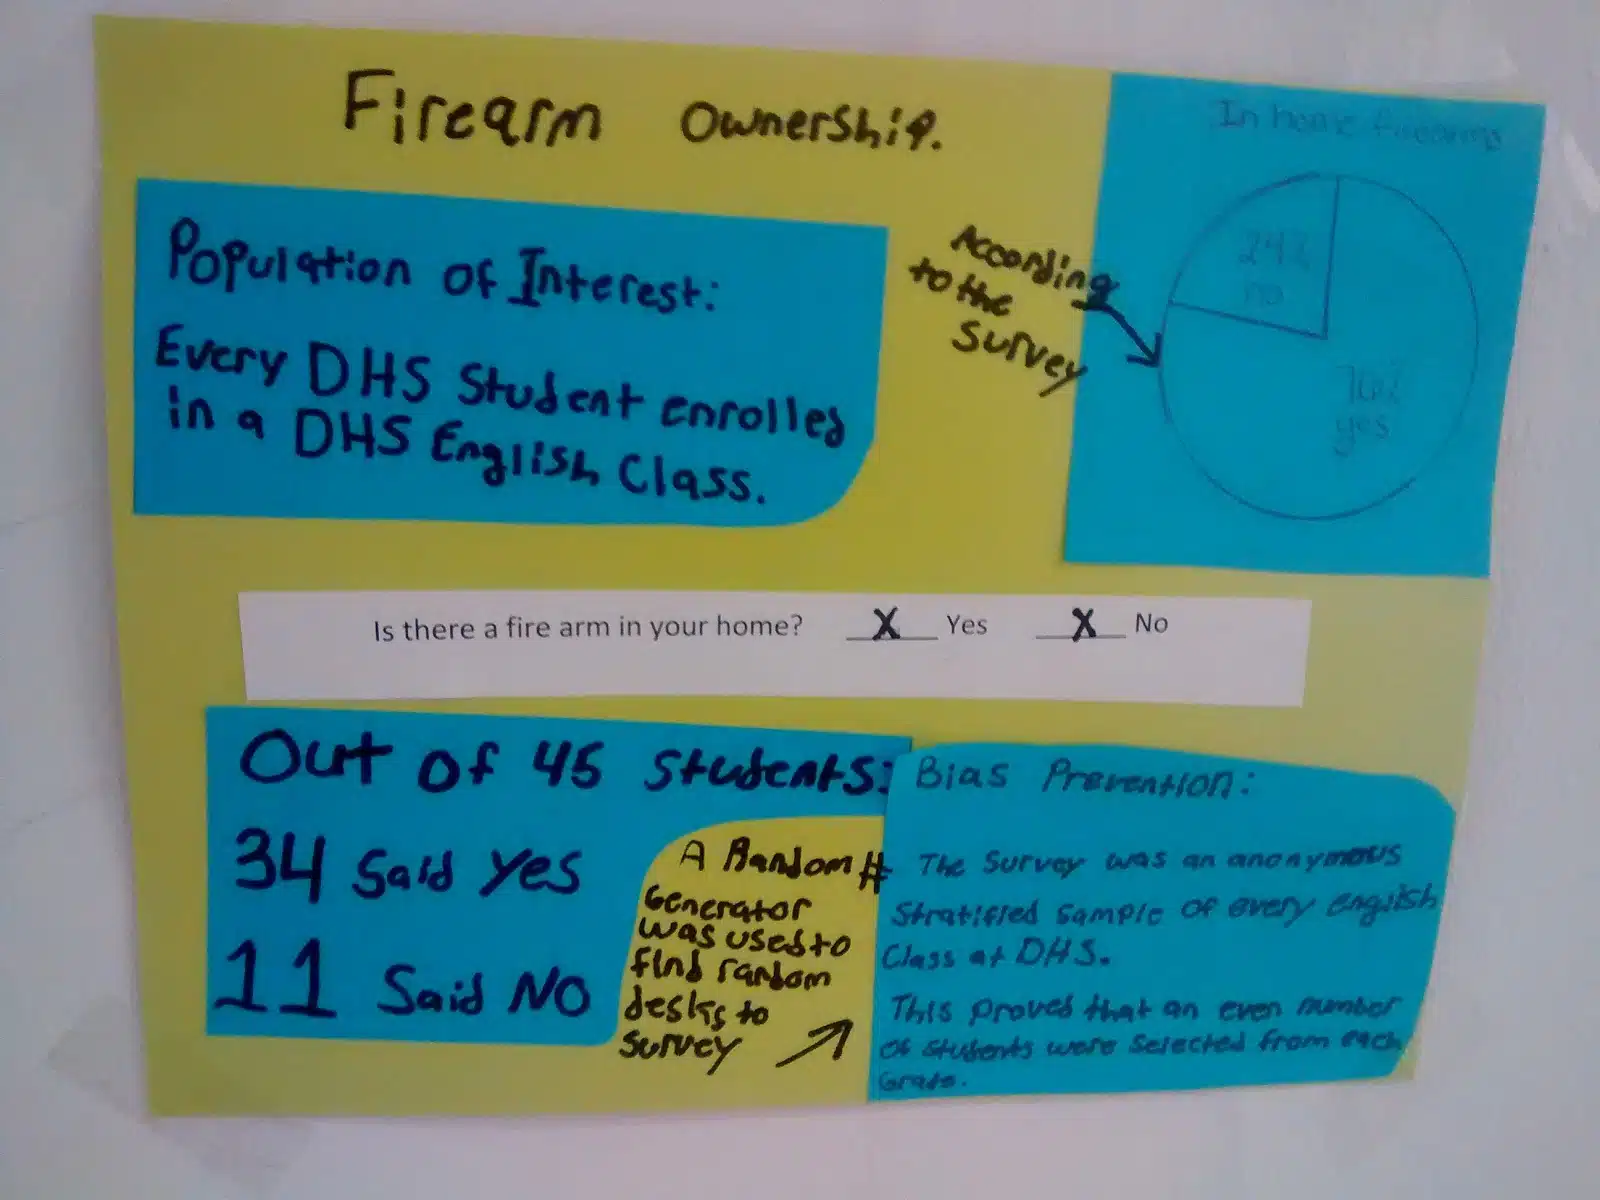 Firearm Ownership.
Population of Interest:
Every DHS Student enrolled
in a DHS English Class.
According
to the
Survey
In home firearms
24%
no
76%
yes
Is there a fire arm in your home? X Yes X No
Out of 45 students:
34 Said Yes
11 Said NO
A Random #
Generator
was used to
find random
desks to
survey
Bias Prevention:
The Survey was an anonymous
Stratified sample of every english
Class at DHS.
This proved that an even number
of students were selected from each
Grade.